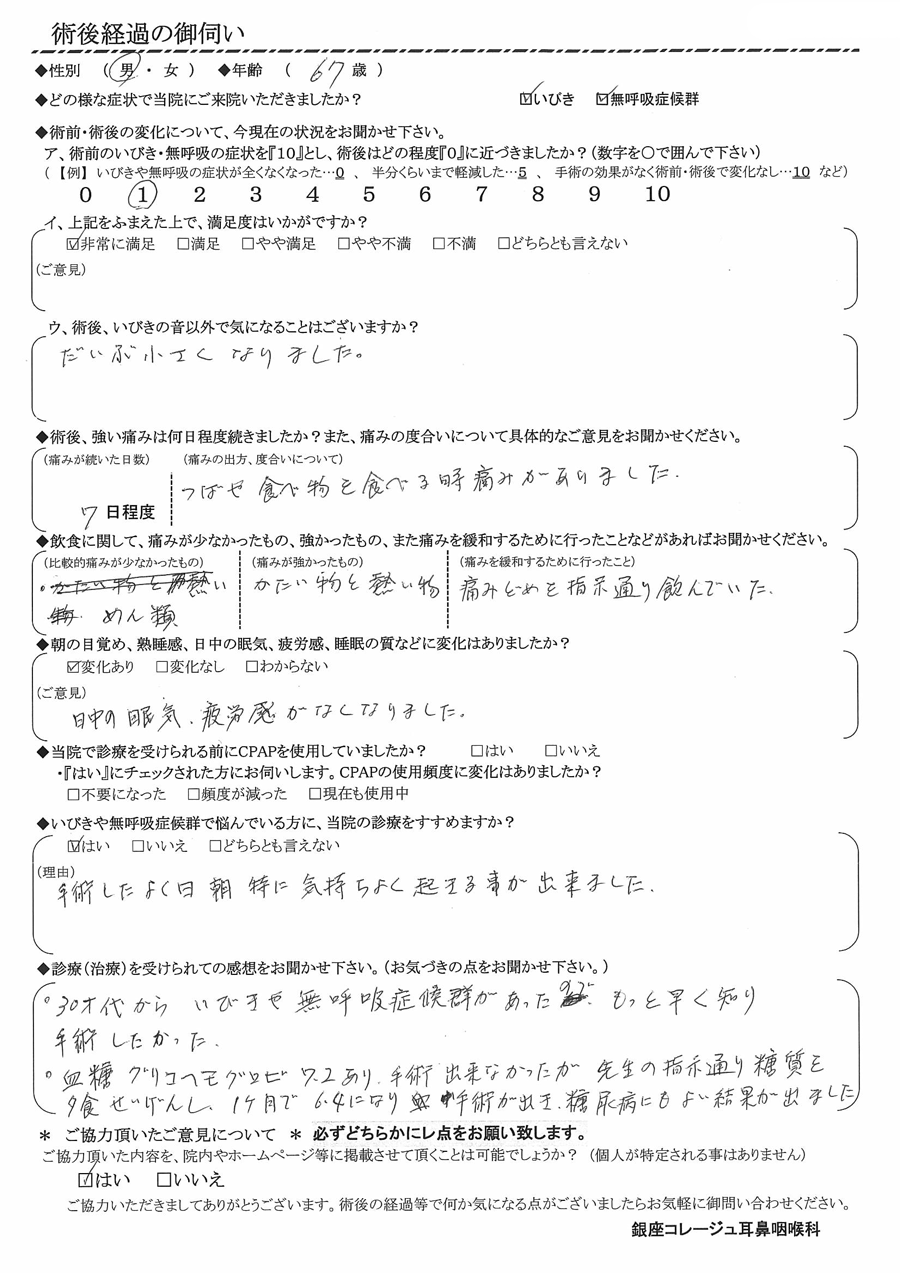 術後経過の御伺い
◆性別 （ 男 ・ 女 ） ◆年齢 （ 67 歳 ）
◆どの様な症状で当院にご来院いただきましたか？ ☑いびき ☑無呼吸症候群
◆術前・術後の変化について、今現在の状況をお聞かせ下さい。
ア、術前のいびき・無呼吸の症状を『10』とし、術後はどの程度『0』に近づきましたか？（数字を〇で囲んで下さい）
（ 【例】 いびきや無呼吸の症状が全くなくなった…0 、 半分くらいまで軽減した…5 、 手術の効果がなく術前・術後で変化なし…10 など）
0 1 2 3 4 5 6 7 8 9 10
イ、上記をふまえた上で、満足度はいかがですか？
☑非常に満足 □満足 □やや満足 □やや不満 □不満 □どちらとも言えない
（ご意見）
ウ、術後、いびきの音以外で気になることはございますか？
だいぶ小さくなりました。
◆術後、強い痛みは何日程度続きましたか？また、痛みの度合いについて具体的なご意見をお聞かせください。
（痛みが続いた日数） （痛みの出方、度合いについて）
つばや食べ物を食べる時痛みがありました.
7 日程度
◆飲食に関して、痛みが少なかったもの、強かったもの、また痛みを緩和するために行ったことなどがあればお聞かせください。
（比較的痛みが少なかったもの） （痛みが強かったもの） （痛みを緩和するために行ったこと）
・かたい物と熱い かたい物と熱い物 痛みどめを指示通り飲んでいた.
めん類
◆朝の目覚め、熟睡感、日中の眠気、疲労感、睡眠の質などに変化はありましたか？
☑変化あり □変化なし □わからない
（ご意見）
日中の眠気、疲労感がなくなりました。
◆当院で診療を受けられる前にCPAPを使用していましたか？ □はい □いいえ
・『はい』にチェックされた方にお伺いします。CPAPの使用頻度に変化はありましたか？
□不要になった □頻度が減った □現在も使用中
◆いびきや無呼吸症候群で悩んでいる方に、当院の診療をすすめますか？
☑はい □いいえ □どちらとも言えない
（理由）
手術したよく日朝特に気持ちよく起きる事が出来ました.
◆診療（治療）を受けられての感想をお聞かせ下さい。（お気づきの点をお聞かせ下さい。）
。30才代から いびきや無呼吸症候群があったので もっと早く知り
手術したかった.
。血糖グリコヘモグロビ7.2あり、手術出来なかったが 先生の指示通り糖質を
夕食せいげんし、1ヶ月で6.4になり 手術が出き、糖尿病にもよい結果が出ました
＊ ご協力頂いたご意見について ＊ 必ずどちらかにレ点をお願い致します。
ご協力頂いた内容を、院内やホームページ等に掲載させて頂くことは可能でしょうか？ （個人が特定される事はありません）
☑はい □いいえ
ご協力いただきましてありがとうございます。術後の経過等で何か気になる点がございましたらお気軽に御問い合わせください。
銀座コレージュ耳鼻咽喉科